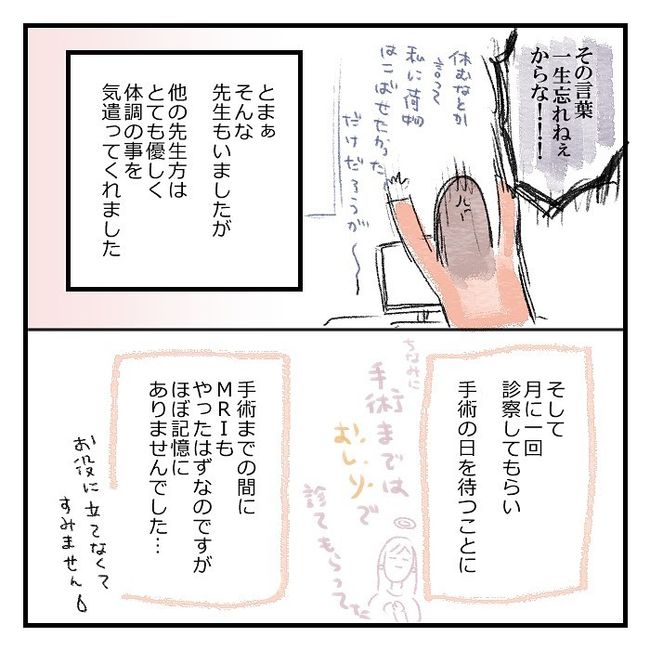 その言葉
一生忘れねぇ
からな!!!
休むなとか
言って
私に荷物
はこばせたかった
だけだろうが〜
とまぁ
そんな
先生もいましたが
他の先生方は
とても優しく
体調の事を
気遣ってくれました
そして
月に一回
診察してもらい
手術の日を待つことに
ちなみに
手術までは
おしりで
診てもらってた
手術までの間に
MRIも
やったはずなのですが
ほぼ記憶に
ありませんでした…
お役に立てなくて
すみません